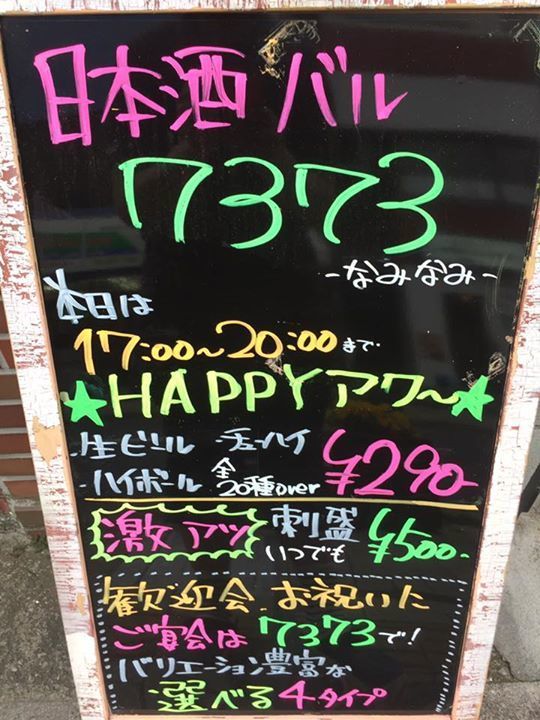 日本酒バル
7373
-なみなみ-
本日は
17:00～20:00まで
★HAPPYアワ～★
・生ビール ・チューハイ
・ハイボール 全20種over ¥290-
激アツ 刺盛 いつでも ¥500-
歓迎会・お祝いた
ご宴会は7373で!
バリエーション豊富な
選べる4タイプ